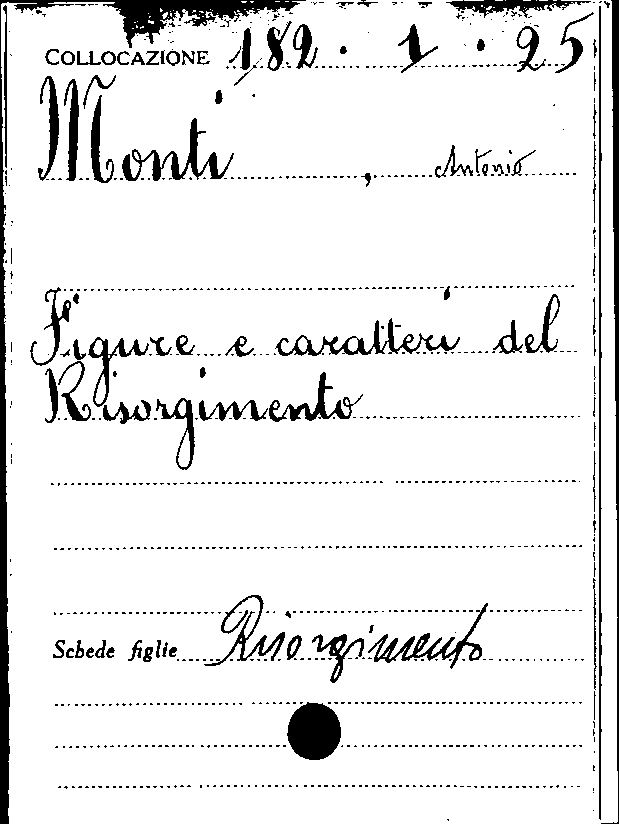 COLLOCAZIONE 182 . 1 . 25
Monti , Antonio
Figure e caratteri del
Risorgimento
Schede figlie Risorgimento